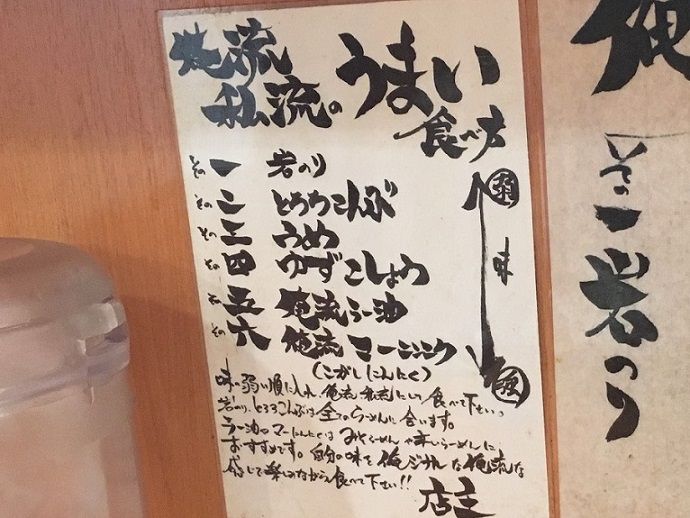 俺流
私流の うまい
食べ方
その一 岩のり
その二 とろろこんぶ
その三 うめ
その四 ゆずこしょう
その五 俺流ラー油
その六 俺流マーニンニク
(こがしにんにく)
弱
味
強
味の弱い順に入れ、俺流、私流にして食べて下さい。
岩のり、とろろこんぶは全てのらーめんに合います。
ラー油・マーにんにくはみそらーめん・辛いらーめんに
おすすめです。自分の味をオリジナルな俺流な
感じで楽しみながら食べて下さい!!
店主
俺
その一岩のり